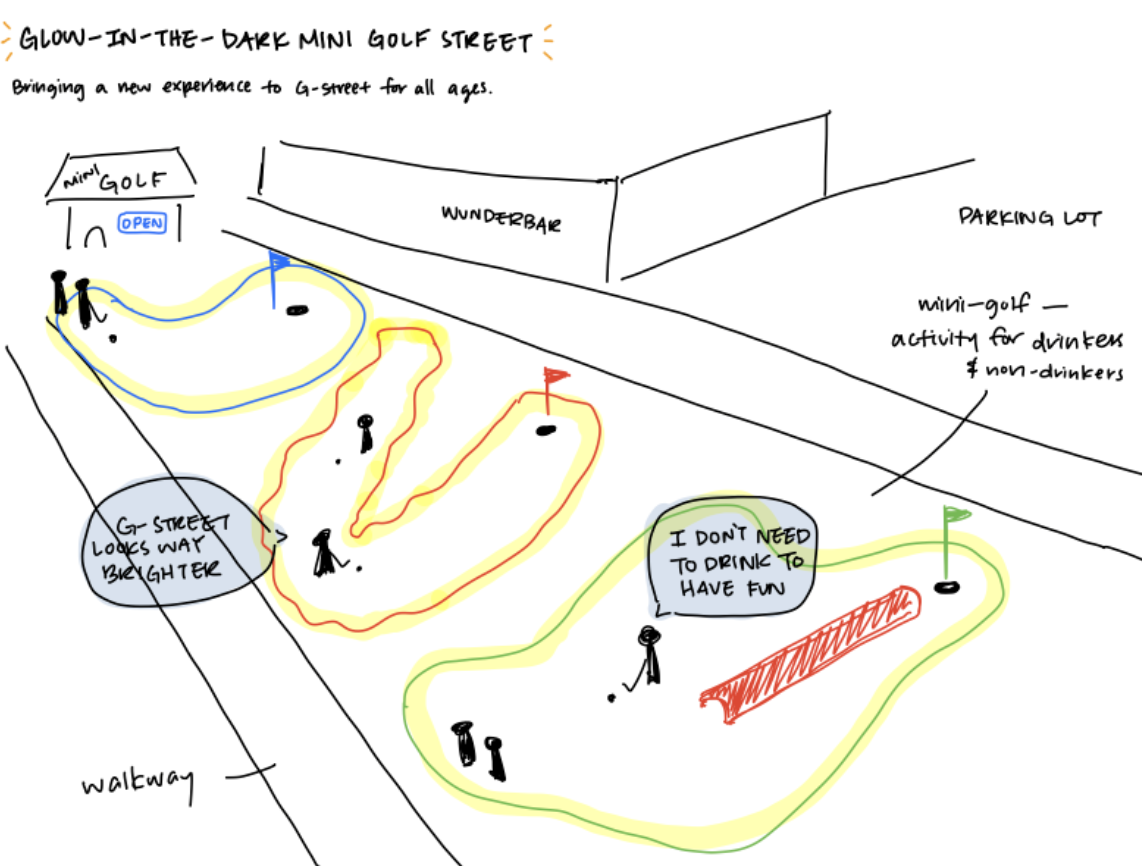 GLOW-IN-THE-DARK MINI GOLF STREET
Bringing a new experience to G-street for all ages.
MINI GOLF
OPEN
WUNDERBAR
PARKING LOT
mini-golf —
activity for drinkers
& non-drinkers
G-STREET
LOOKS WAY
BRIGHTER
I DON'T NEED
TO DRINK TO
HAVE FUN
walkway